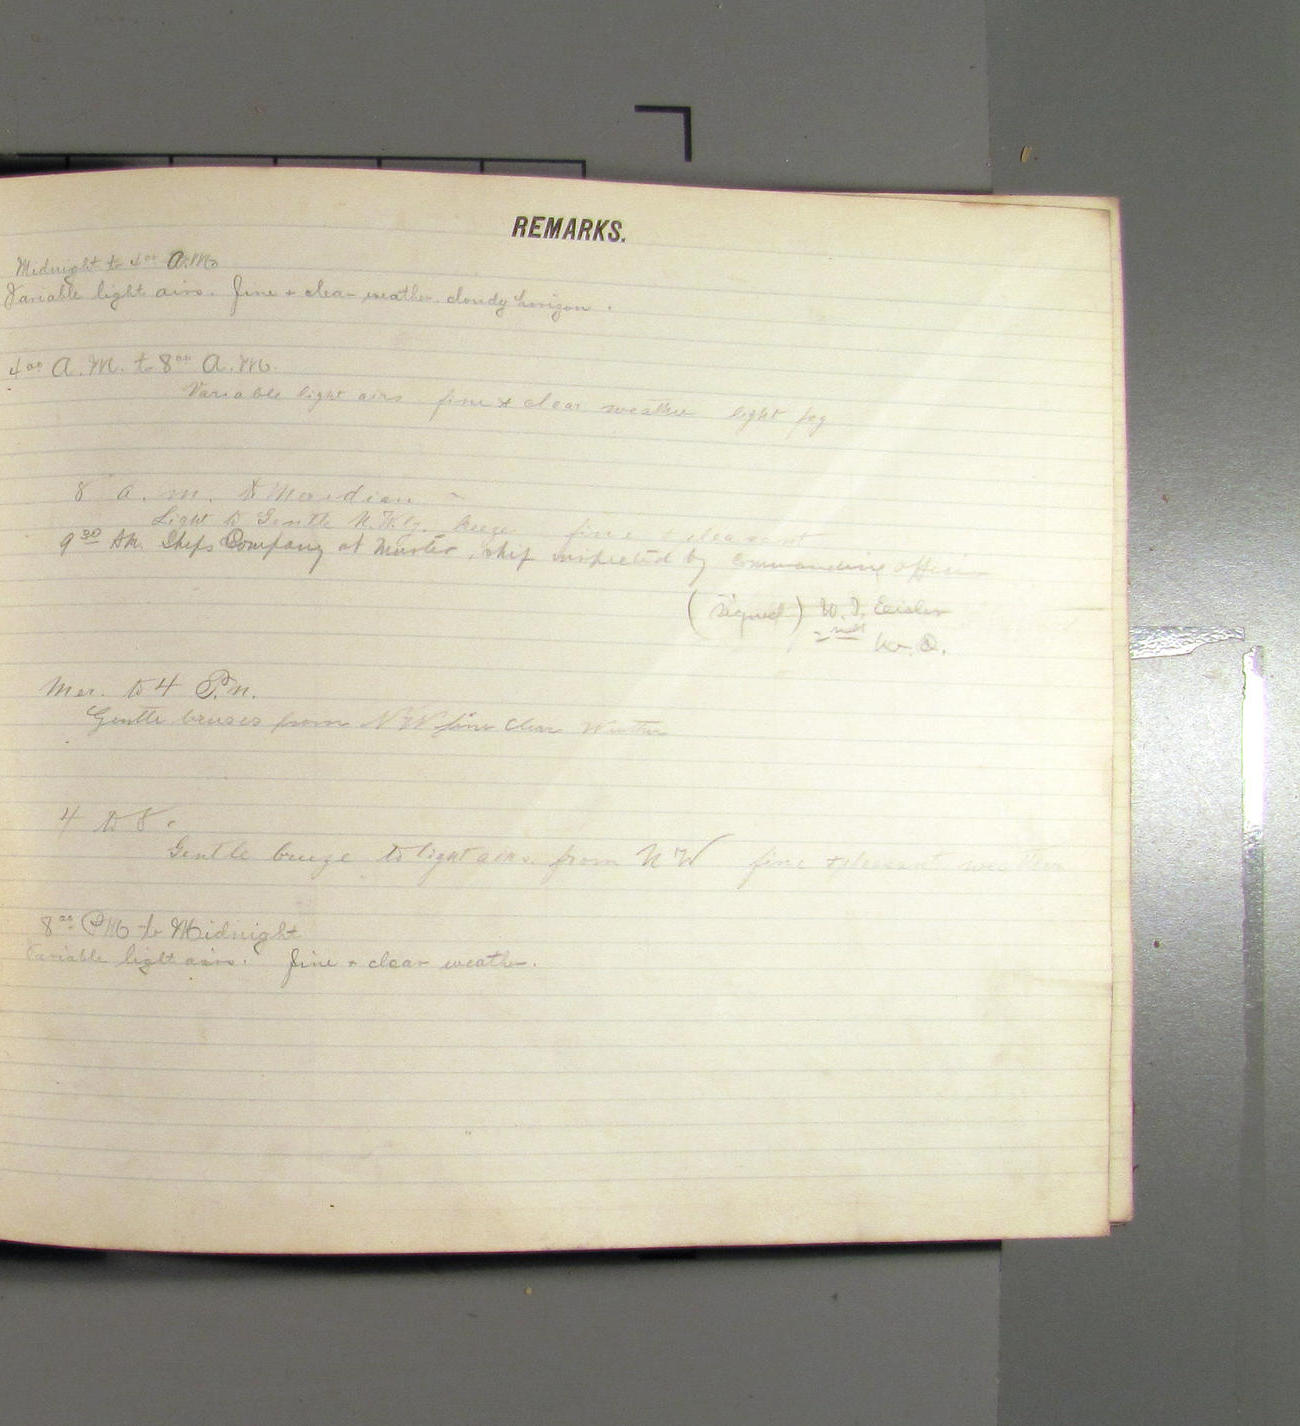 REMARKS.
Midnight to 4⁰⁰ A.M.
Variable light airs. Fine + clear weather. cloudy horizon.
4⁰⁰ A.M. to 8⁰⁰ A.M.
Variable light airs fine & clear weather light fog
8 a.m. to Meridian
Light to Gentle N.W.ly. breeze fine + pleasant
9³⁰ AM. Ships Company at Muster, ship inspected by commanding officer
(Signed) W. I. Eisler
W.O.
Mer. to 4 P.M.
Gentle breezes from NW fine clear Weather
4 to 8.
Gentle breeze to light airs. from NW fine + pleasant weather
8⁰⁰ PM to Midnight
Variable light airs. Fine + clear weather.